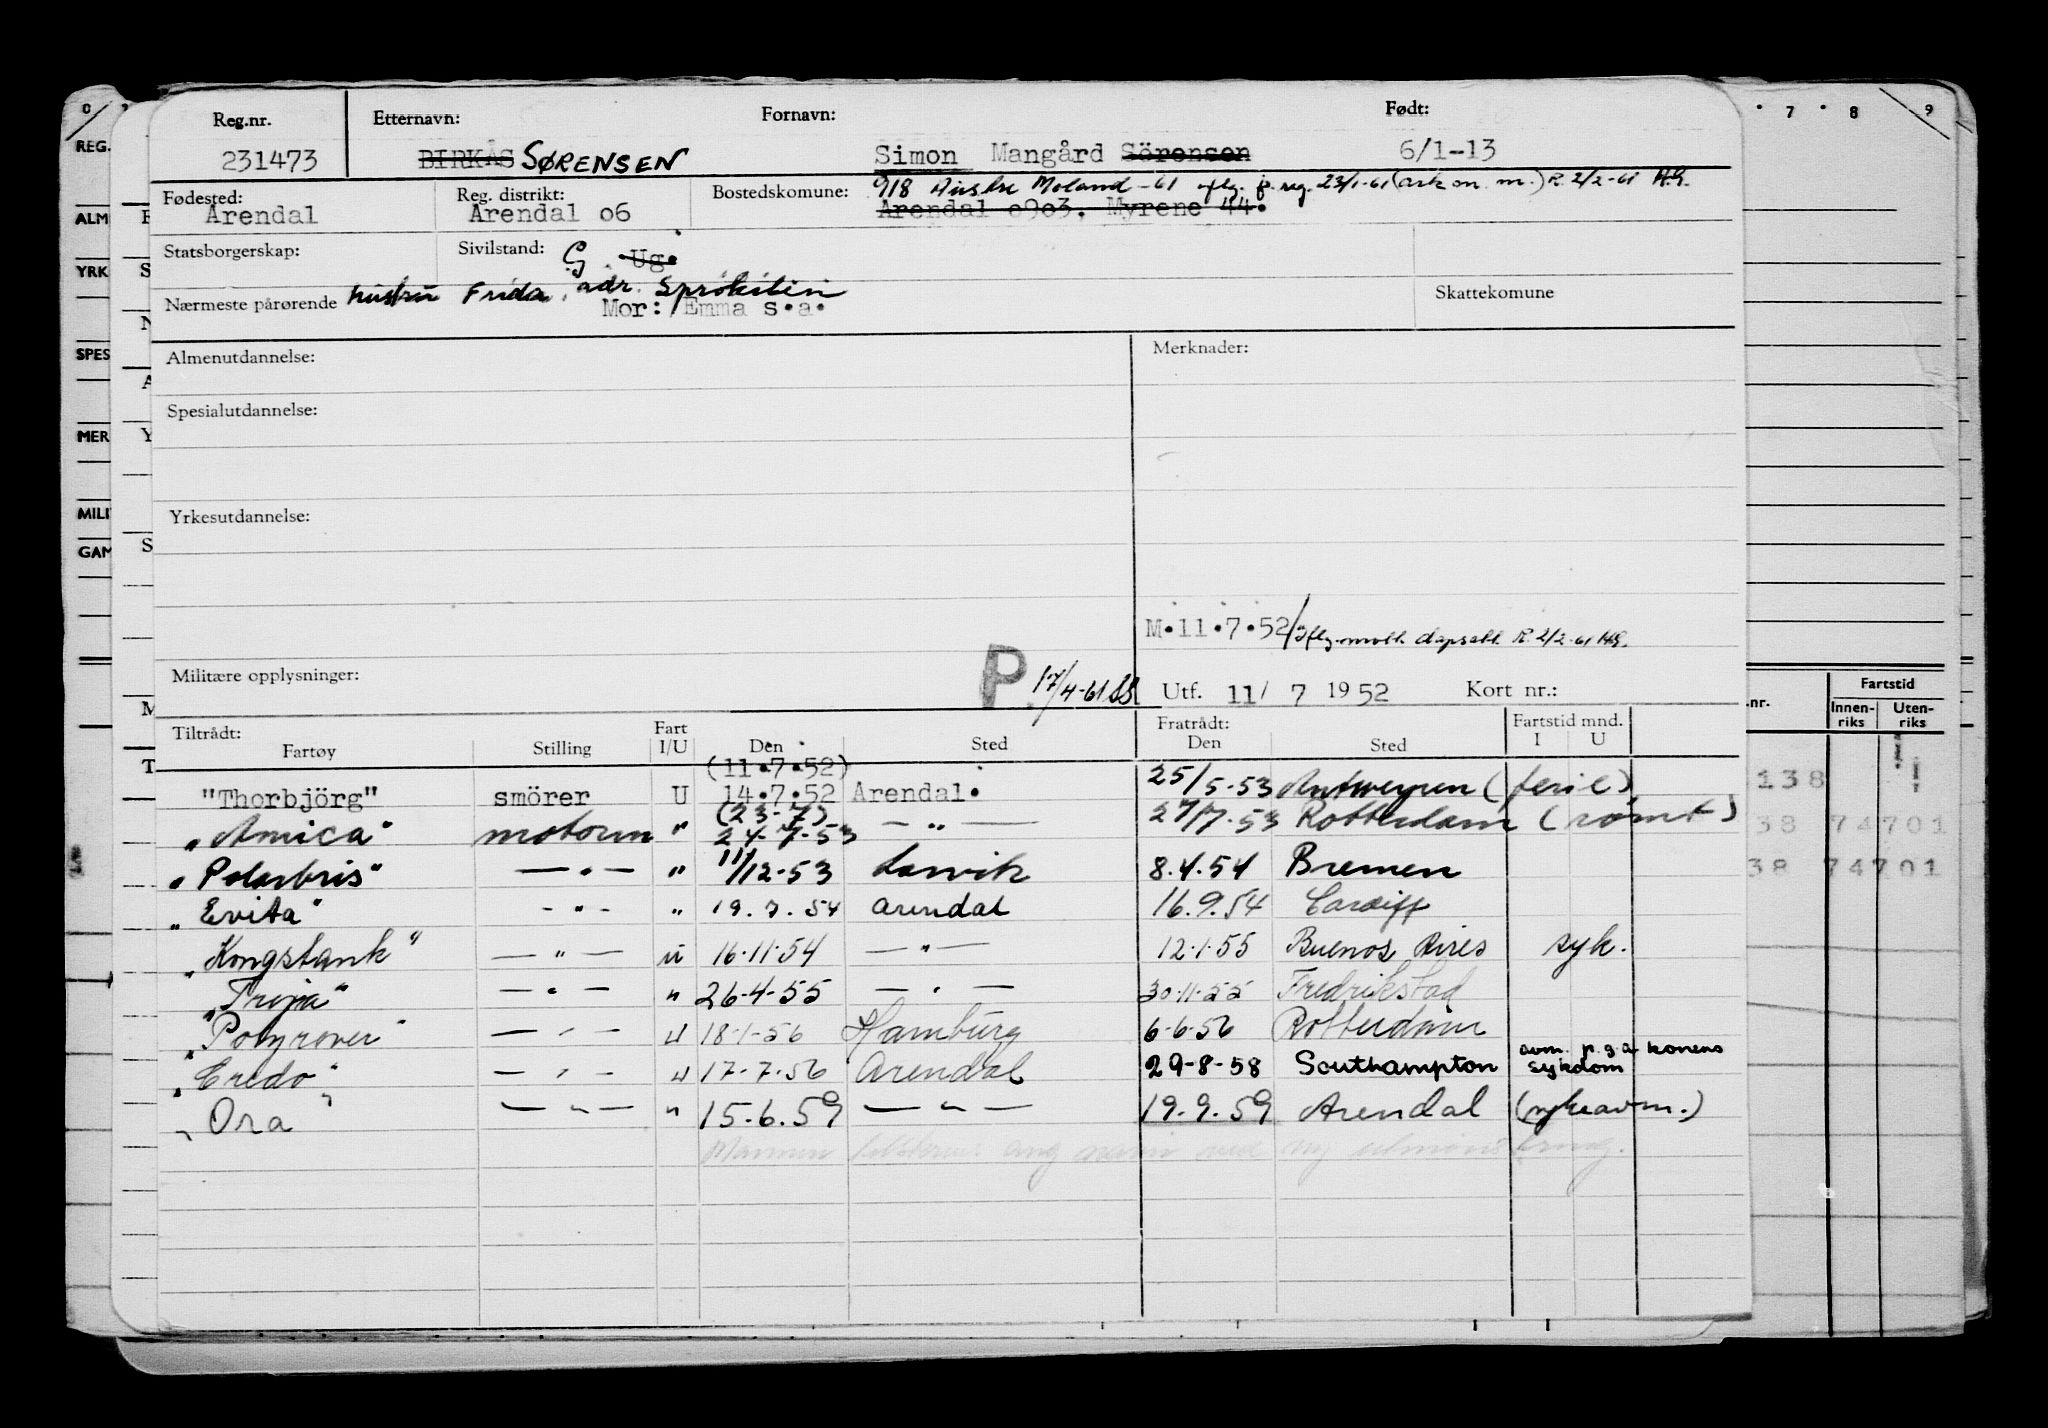 Reg.nr. Etternavn: Fornavn: Født:
231473 BIRKÅS SØRENSEN Simon Mangård Sörensen 6/1-13
Fødested: Reg. distrikt: Bostedskomune: 918 Austre Moland -61 iflg. p. reg. 23/1-61 (ark on. m.) R. 2/2-61 H.G.
Arendal Arendal 06 Arendal 0903, Myrene 44.
Statsborgerskap: Sivilstand: G Ug.
Nærmeste pårørende hustru Frida, adr. Skattekomune
Mor: Emma s.a.
Almenutdannelse: Merknader:
Spesialutdannelse:
Yrkesutdannelse:
M.11.7.52/ iflg. R. 2/2-61 HG.
Militære opplysninger: P. 17/4-61 Utf. 11/ 7 1952 Kort nr.:
Tiltrådt: Fart Fratrådt: Fartstid mnd.
Fartøy Stilling I/U Den Sted Den Sted I U
(11.7.52)
"Thorbjörg" smörer U 14.7.52 Arendal. 25/5-53 Antwerpen (ferie)
(23-7)
"Amica" motorm " 24-7-53 — " — 27/7-53 Rotterdam (rømt)
"Polarbris" — " — " 11/12-53 Larvik 8.4.54 Bremen
"Evita" - " - " 19.7.54 Arendal 16.9.54 Cardiff
"Kongstank" — " — u 16.11.54 — " — 12.1.55 Buenos Aires syk.
"Troja" — " — " 26-4-55 — " — 30.11.55 Fredrikstad
"Polyrover" — " — U 18-1-56 Hamburg 6-6-56 Rotterdam
avm. p.g.a konens
"Credo" — " — U 17-7-56 Arendal 29-8-58 Southampton sykdom
"Ora" — " — " 15.6.59 — " — 19.9.59 Arendal (sykeavm.)
Mannen ang navn ved ny
0 7 8 9
REG.
ALM
YRK
SPES
MER
MILI
GAM
Fartstid
.nr. Innen-riks Uten-riks
138
38 74701
38 74701